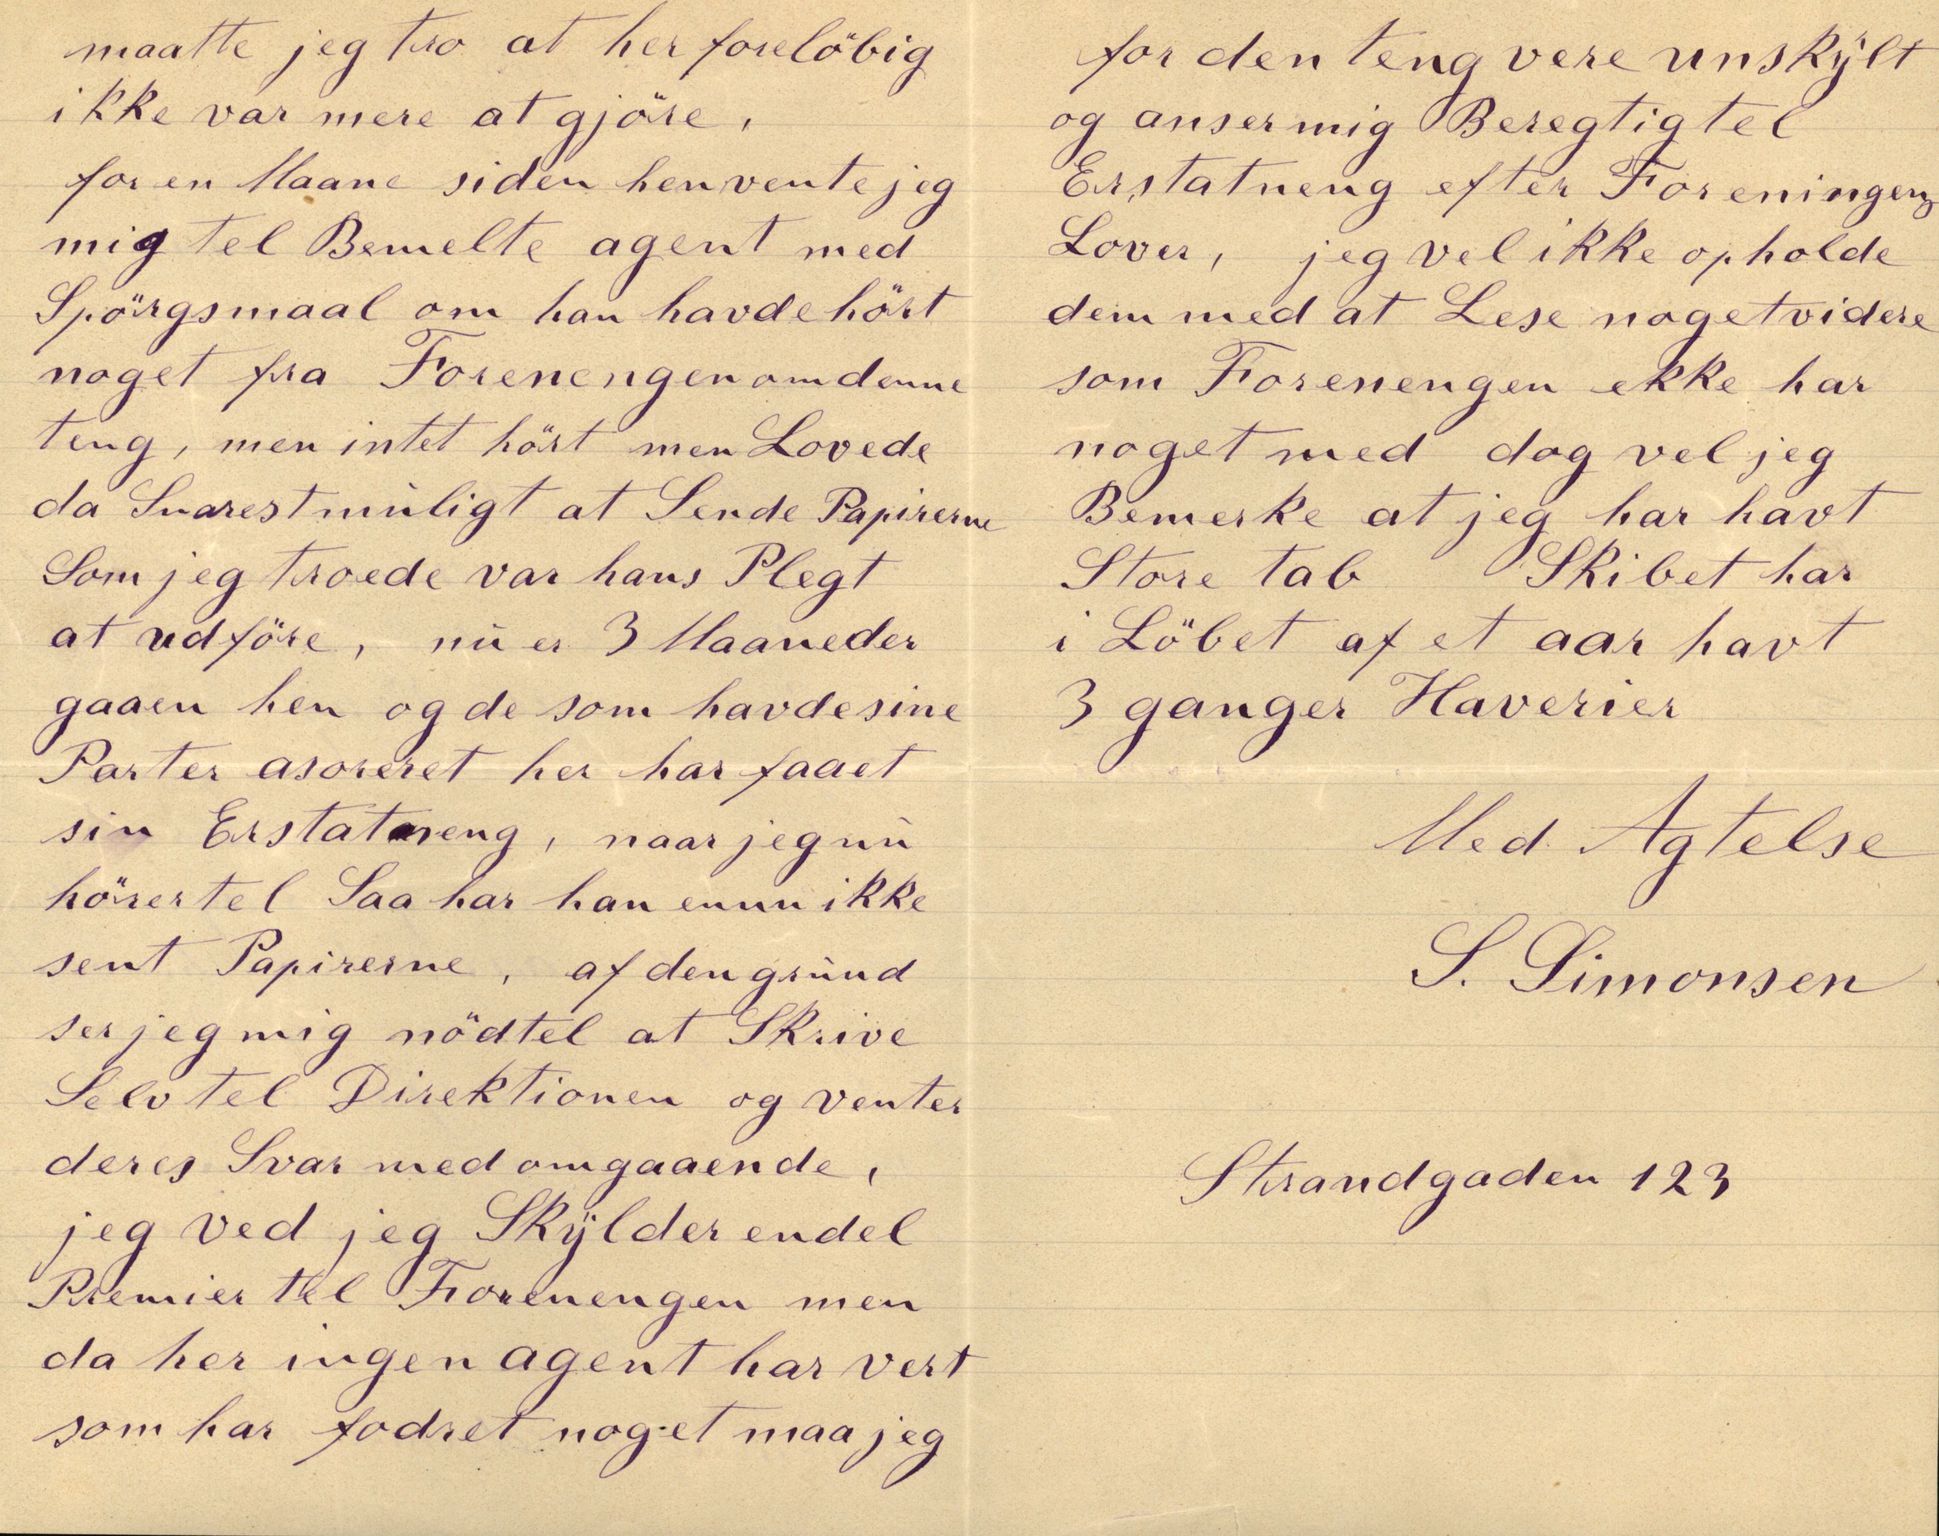 maatte jeg tro at her forelöbig
ikke var mere at gjöre,
for en Maane siden henvente jeg
mig tel Bemelte agent med
Spörgsmaal om han havde hört
noget fra Forenengen om denne
teng, men intet hört men Lovede
da Snarest muligt at Sende Papirerne
Som jeg troede var hans Plegt
at udföre, nu er 3 Maaneder
gaaen hen og de som havde sine
Parter asoreret her har faaet
sin Erstatneng, naar jeg nu
hörer tel Saa har han ennu ikke
sent Papirerne, af den grund
ser jeg mig nödtel at Skrive
Selv tel Direktionen og venter
deres Svar med omgaaende,
jeg ved jeg Skÿlder endel
Premier tel Forenengen men
da her ingen agent har vert
som har fodret noget maa jeg
for den teng vere unskÿlt
og anser mig Beregtig tel
Erstatneng efter Foreningens
Lover, jeg vel ikke opholde
dem med at Lese noget videre
som Forenengen ekke har
noget med dog vel jeg
Bemerke at jeg har havt
Store tab Skibet har
i Löbet af et aar havt
3 ganger Haverier
Med Agtelse
S. Simonsen
Strandgaden 123